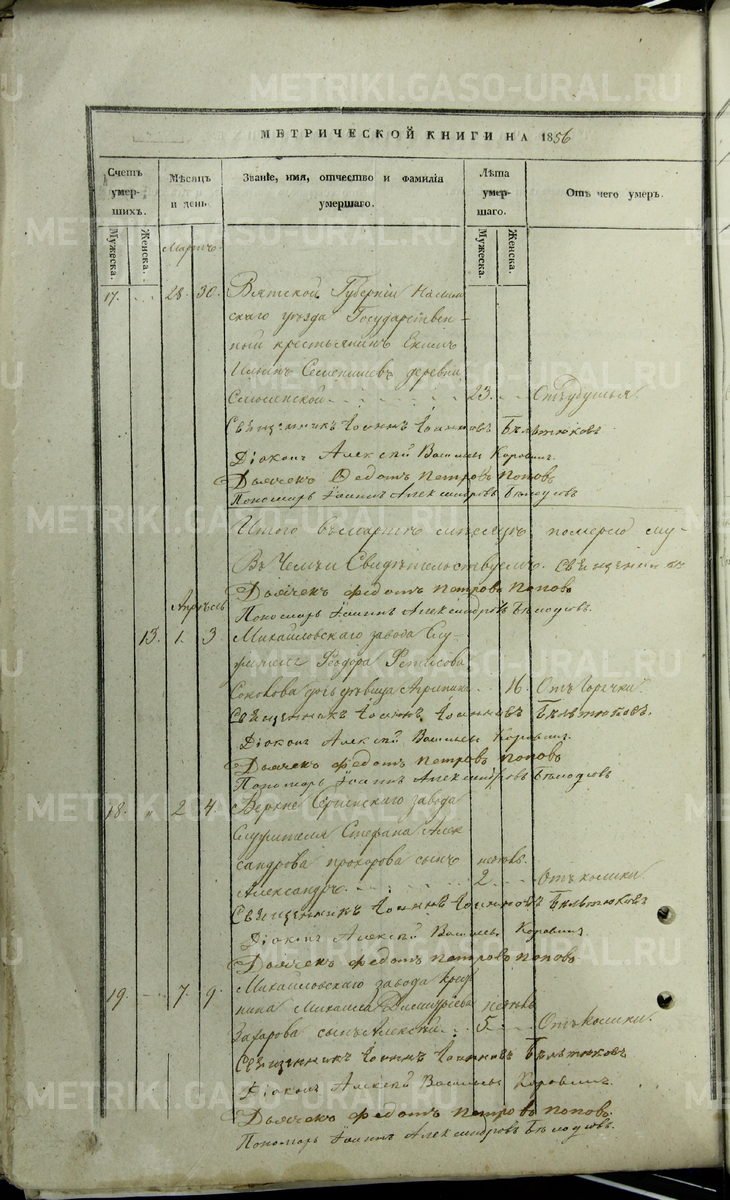 МЕТРИЧЕСКОЙ КНИГИ НА 1856
Счетъ умер-шихъ. Мѣсяцъ и день. Званіе, имя, отчество и фамилія умершаго. Лѣта умер-шаго. Отъ чего умеръ.
Мужеска. Женска. Мужеска. Женска.
Мартъ
17. 28 30. Вятской Губерніи
скаго уѣзда Государствен-
ный крестьянинъ Екимъ
Ильинъ деревни
23. Отъ удушья.
Священникъ Іоаннъ Іоанновъ Бѣлътюковъ
Діаконъ Алексѣй Васильевъ Коровинъ.
Дьячекъ Федотъ Петровъ Поповъ
Пономарь Іоаннъ Александровъ
Итого въ мартѣ мѣсяцѣ померло му-
Въ чемъ и Свидѣтельствуемъ. Священникъ
Дьячекъ Федотъ Петровъ Поповъ
Пономарь Іоаннъ Александровъ
Апрѣль
13. 1. 3. Михайловскаго завода Слу-
жителя Феодора
дочь дѣвица Агрипина 16. Отъ Горячки.
Священникъ Іоаннъ Іоанновъ Бѣлътюковъ.
Діаконъ Алексѣй Васильевъ Коровинъ.
Дьячекъ Федотъ Петровъ Поповъ
Пономарь Іоаннъ Александровъ
18. 2 4. Верхне Сергинскаго завода
Служителя Стефана Алек
сандрова Прохорова сынъ
Александръ 2. Отъ колики
Священникъ Іоаннъ Іоанновъ Бѣлътюковъ
Діаконъ Алексѣй Васильевъ Коровинъ
Дьячекъ Федотъ Петровъ Поповъ
19. 7. 9. Михайловскаго завода
Димитріева
Захарова сынъ Алексѣй 5. Отъ колики.
Священникъ Іоаннъ Іоанновъ Бѣлътюковъ
Діаконъ Алексѣй Васильевъ Коровинъ.
Дьячекъ Федотъ Петровъ Поповъ.
Пономарь Іоаннъ Александровъ
METRIKI.GASO-URAL.RU